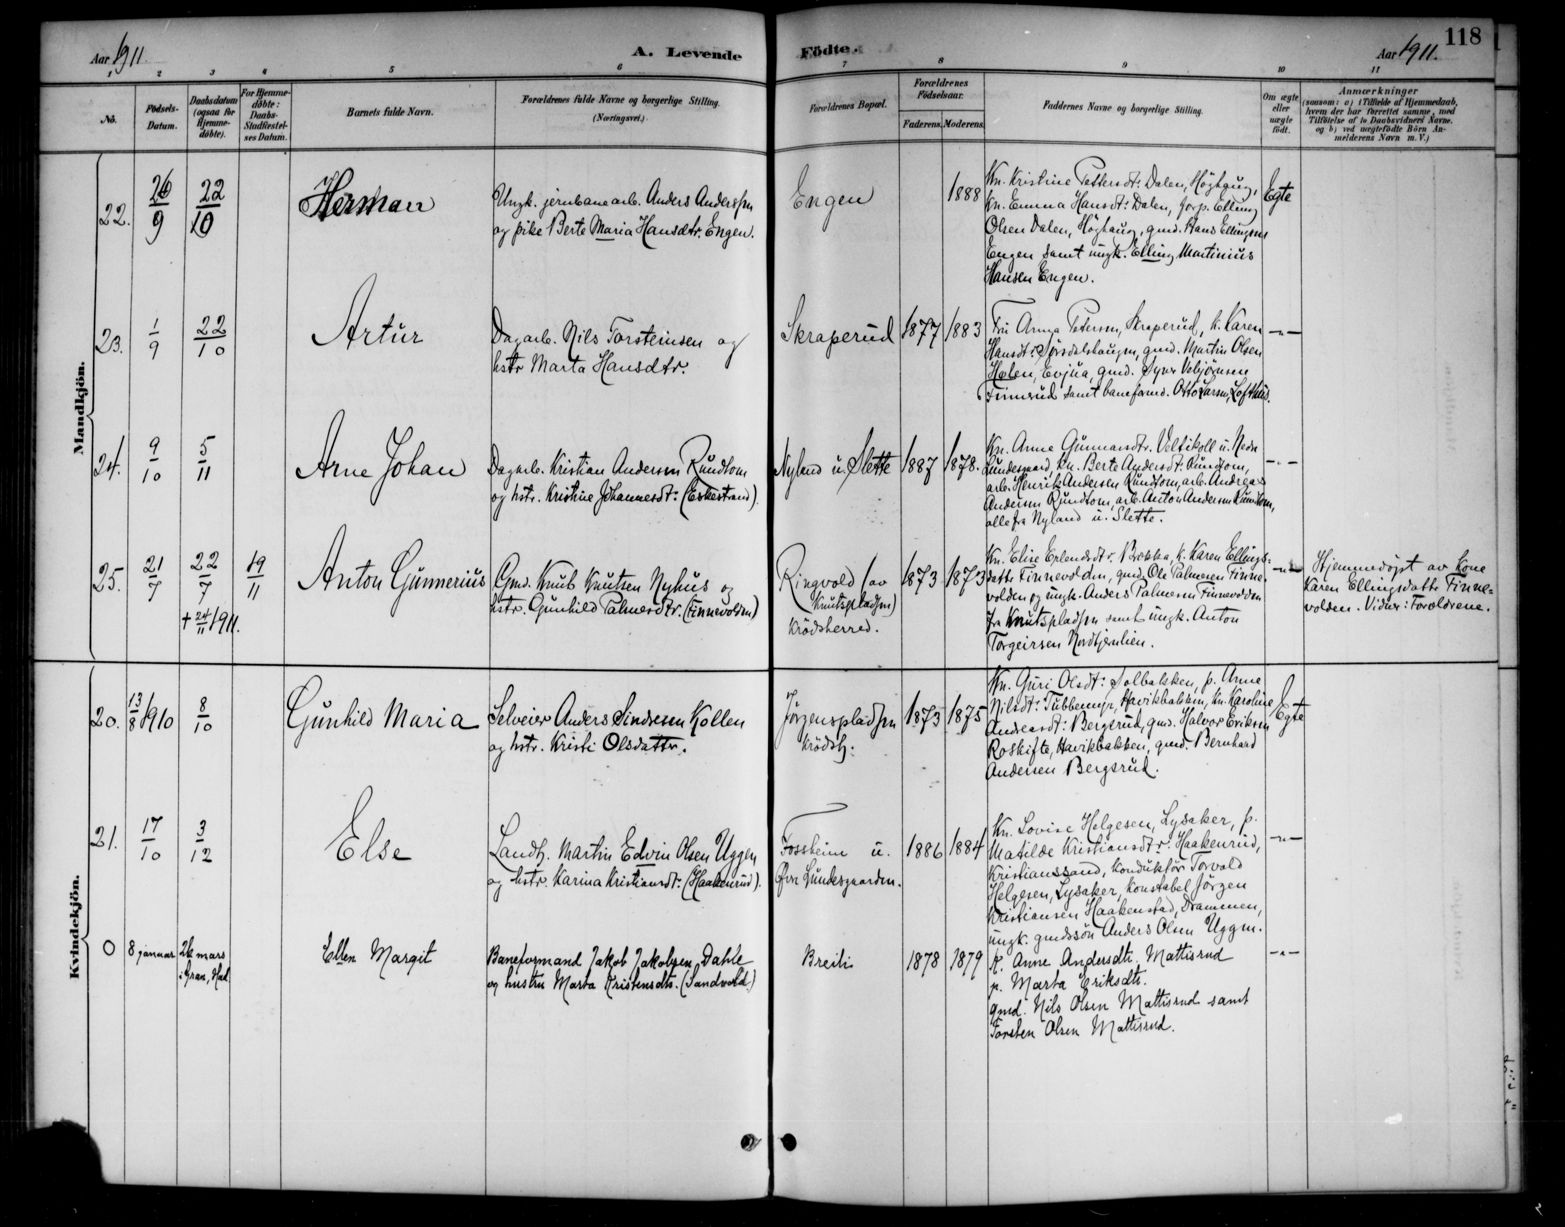 118
Aar 1911. A. Levende Födte. Aar 1911.
1 2 3 4 5 6 7 8 9 10 11
No. Födsels-Datum. Daabsdatum (ogsaa for Hjemmedöbte). For Hjemmedöbte: Daabs-Stadfestelses Datum. Barnets fulde Navn. Forældrenes fulde Navne og borgerlige Stilling. (Næringsvei.) Forældrenes Bopæl. Forældrenes Födselsaar. Faderens. Moderens. Faddernes Navne og borgerlige Stilling. Om ægte eller uægte födt. Anmærkninger
(saasom: a) i Tilfælde af Hjemmedaab,
hvem der har forrettet samme, med
Tilföielse af to Daabsvidners Navne.
og b) ved uægtefödte Börn Anmelderens Navn m. V.)
Mandkjön.
22. 26/9 22/10 Herman
Ungk. jernbanearb. Anders Anderssen
og pike Berte Maria Hansdtr. Engen.
Engen 1888
Kn. Kristine Pettersdt: Dalen, Höghaug,
Kn. Emma Hansdt: Dalen, forp. Elling
Olsen Dalen, Höghaug, gmd. Hans Ellingsen
Engen samt ungk. Elling Martinius
Hansen Engen.
Egte
23. 1/9 22/10 Artur
Dagarb. Nils Torsteinsen og
hstr Marta Hansdtr.
Skraperud 1877 1883
Fru Anna Petersen, Skraperud, k. Karen
Hansdt: Sörsdalshaugen, gmd. Martin Olsen
Hølen, Evjua, gmd. Syver Vebjörnsen
Finnerud samt baneformd. Otto Larsen, Lofthus.
-"-
24. 9/10 5/11 Arne Johan
Dagarb. Kristian Andersen Rundtom
og hstr. Kristine Johannesdt: (Eskestrand).
Nyland u. Slette 1887 1878.
Kn. Anne Gunnarsdtr. Veltikoll u. Nedr
Lundesgaard, kn. Berte Andersdt: Rundtom,
arb. Henrik Andersen Rundtom, arb. Andreas
Andersen Rundtom, arb. Anton Andersen Rundtom,
alle fra Nyland u. Slette.
-"-
25. 21/7 22/7 19/11 Anton Gunnerius
+ 24/11 1911.
Gmd. Knut Knutsen Nyhus og
hstr. Gunhild Palmesdtr. (Finnevolden)
Ringvold (av
Knutspladsen)
Krödsherred.
1873 1873
Kn. Elise Erlendsdtr. Brekka, k. Karen Ellings-
datter Finnevolden, gmd. Ole Palmesen Finne-
volden og ungk. Anders Palmesen Finnevolden
fra Knutspladsen samt ungk. Anton
Torgeirsen Nordtjernlien.
-"-
Hjemmedöpt av kone
Karen Ellingsdatter Finne-
volden. Vidner: Forældrene.
Kvindekjön.
20. 13/8 1910 8/10 Gunhild Maria
Selveier Anders Sindresen Kollen
og hstr. Kristi Olsdattr.
Jörgenspladsen
Krödsh:
1873 1875
Kn. Guri Olsdt: Solbakken, p. Anne
Nilsdt: Tubbemyr, Havikbakken, kn. Karoline
Andreasdt: Bergsrud, gmd. Halvor Eriksen
Roskifte, Havikbakken, gmd. Bernhard
Andersen Bergsrud.
Egte
21. 17/10 3/12 Else
Landh. Martin Edvin Olsen Uggen
og hstr. Karina Kristiansdt: (Haakenrud).
Fossheim u.
Øvre Lundesgaarden.
1886 1884
Kn. Lovise Helgesen, Lysaker, p.
Matilde Kristiansdtr. Haakenrud,
Kristianssand, konduktör Torvald
Helgesen, Lysaker, konstabel Jörgen
Kristiansen Haakenstad, Drammen,
ungk. gmdssön Anders Olsen Uggen.
-"-
0 8 januar 26 mars
i Gran, Had.
Ellen Margit
Baneformand Jakob Jakobsen Dahle
og hustru Marta Kristensdtr. (Sandvold)
Breili 1878 1879
K. Anne Andersdtr. Mattisrud
p. Marta Eriksdtr.
gmd. Nils Olsen Mattisrud samt
Torsten Olsen Mattisrud.
-"-